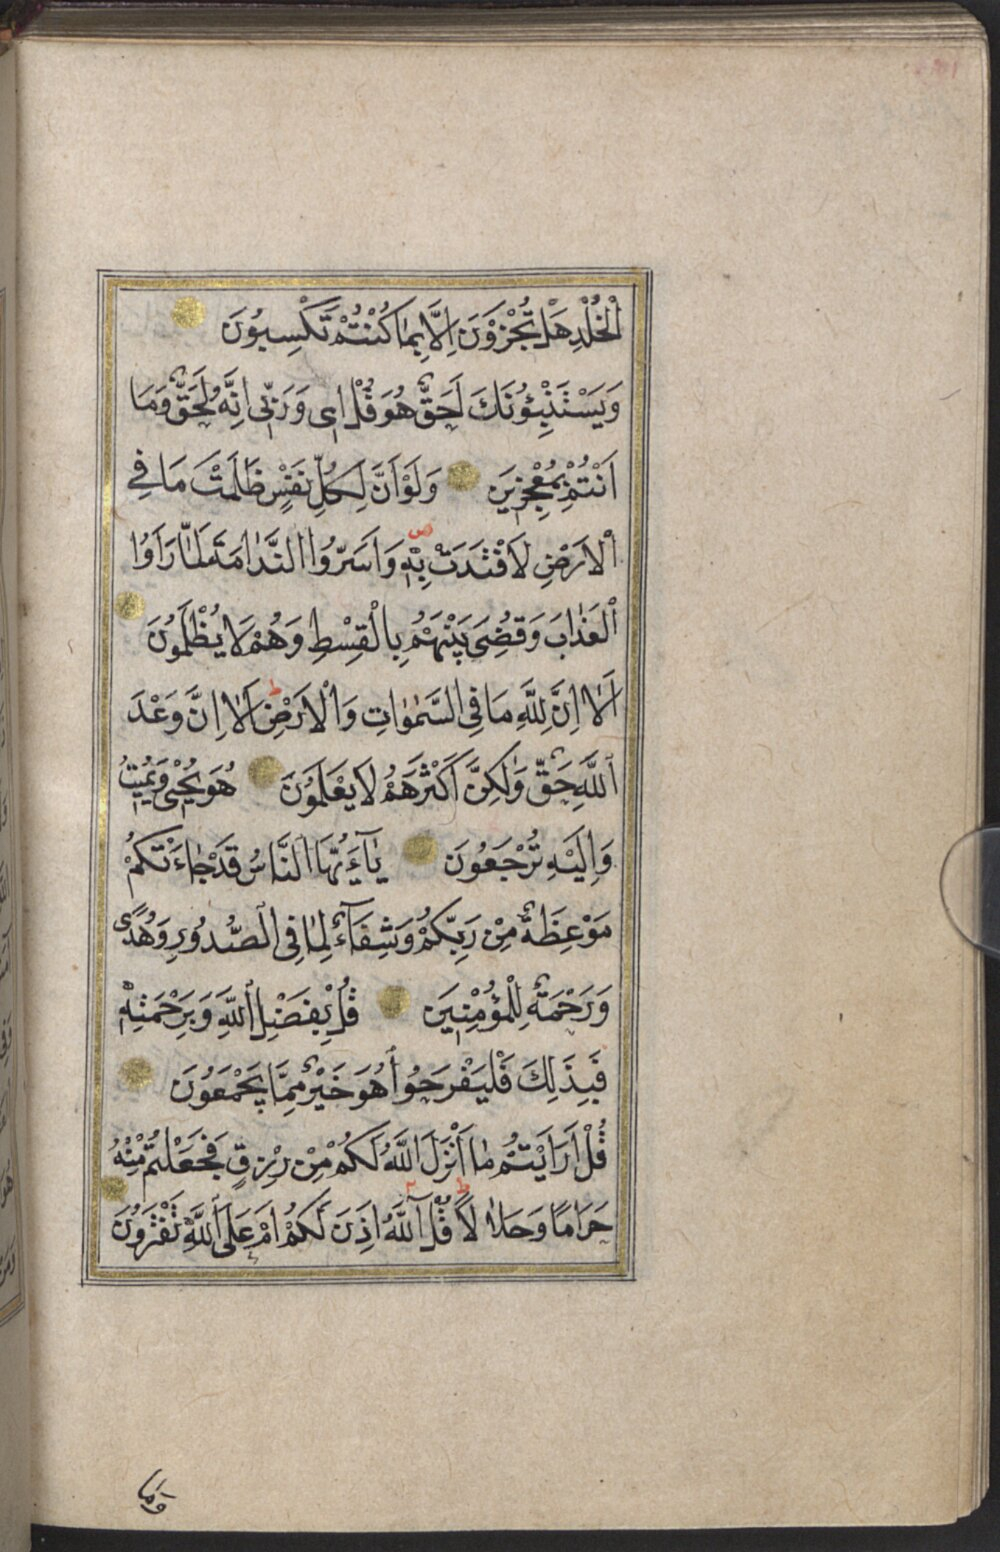 الْخُلْدِ هَلْ تُجْزَوْنَ اِلَّا بِمَا كُنْتُمْ تَكْسِبُوْنَ
وَيَسْتَنْبِئُوْنَكَ اَحَقٌّ هُوَ قُلْ اِى وَرَبّٖى اِنَّهُ لَحَقٌّ وَمَا
اَنْتُمْ بِمُعْجِزٖينَ وَلَوْ اَنَّ لِكُلِّ نَفْسٍ ظَلَمَتْ مَا فِى
الْاَرْضِ لَافْتَدَتْ بِهٖ وَاَسَرُّوا النَّدَامَةَ لَمَّا رَاَوُا
الْعَذَابَ وَقُضِىَ بَيْنَهُمْ بِالْقِسْطِ وَهُمْ لَا يُظْلَمُوْنَ
اَلَا اِنَّ لِلّٰهِ مَا فِى السَّمٰوَاتِ وَالْاَرْضِ اَلَا اِنَّ وَعْدَ
اللّٰهِ حَقٌّ وَلٰكِنَّ اَكْثَرَهُمْ لَا يَعْلَمُوْنَ هُوَ يُحْيٖى وَيُمٖيتُ
وَاِلَيْهِ تُرْجَعُوْنَ يَآ اَيُّهَا النَّاسُ قَدْ جَاءَتْكُمْ
مَوْعِظَةٌ مِنْ رَبِّكُمْ وَشِفَآءٌ لِمَا فِى الصُّدُوْرِ وَهُدًى
وَرَحْمَةٌ لِلْمُؤْمِنٖينَ قُلْ بِفَضْلِ اللّٰهِ وَبِرَحْمَتِهٖ
فَبِذٰلِكَ فَلْيَفْرَحُوْا هُوَ خَيْرٌ مِمَّا يَجْمَعُوْنَ
قُلْ اَرَاَيْتُمْ مَا اَنْزَلَ اللّٰهُ لَكُمْ مِنْ رِزْقٍ فَجَعَلْتُمْ مِنْهُ
حَرَامًا وَحَلَالًا قُلْ آللّٰهُ اَذِنَ لَكُمْ اَمْ عَلَى اللّٰهِ تَفْتَرُوْنَ
وَمَا